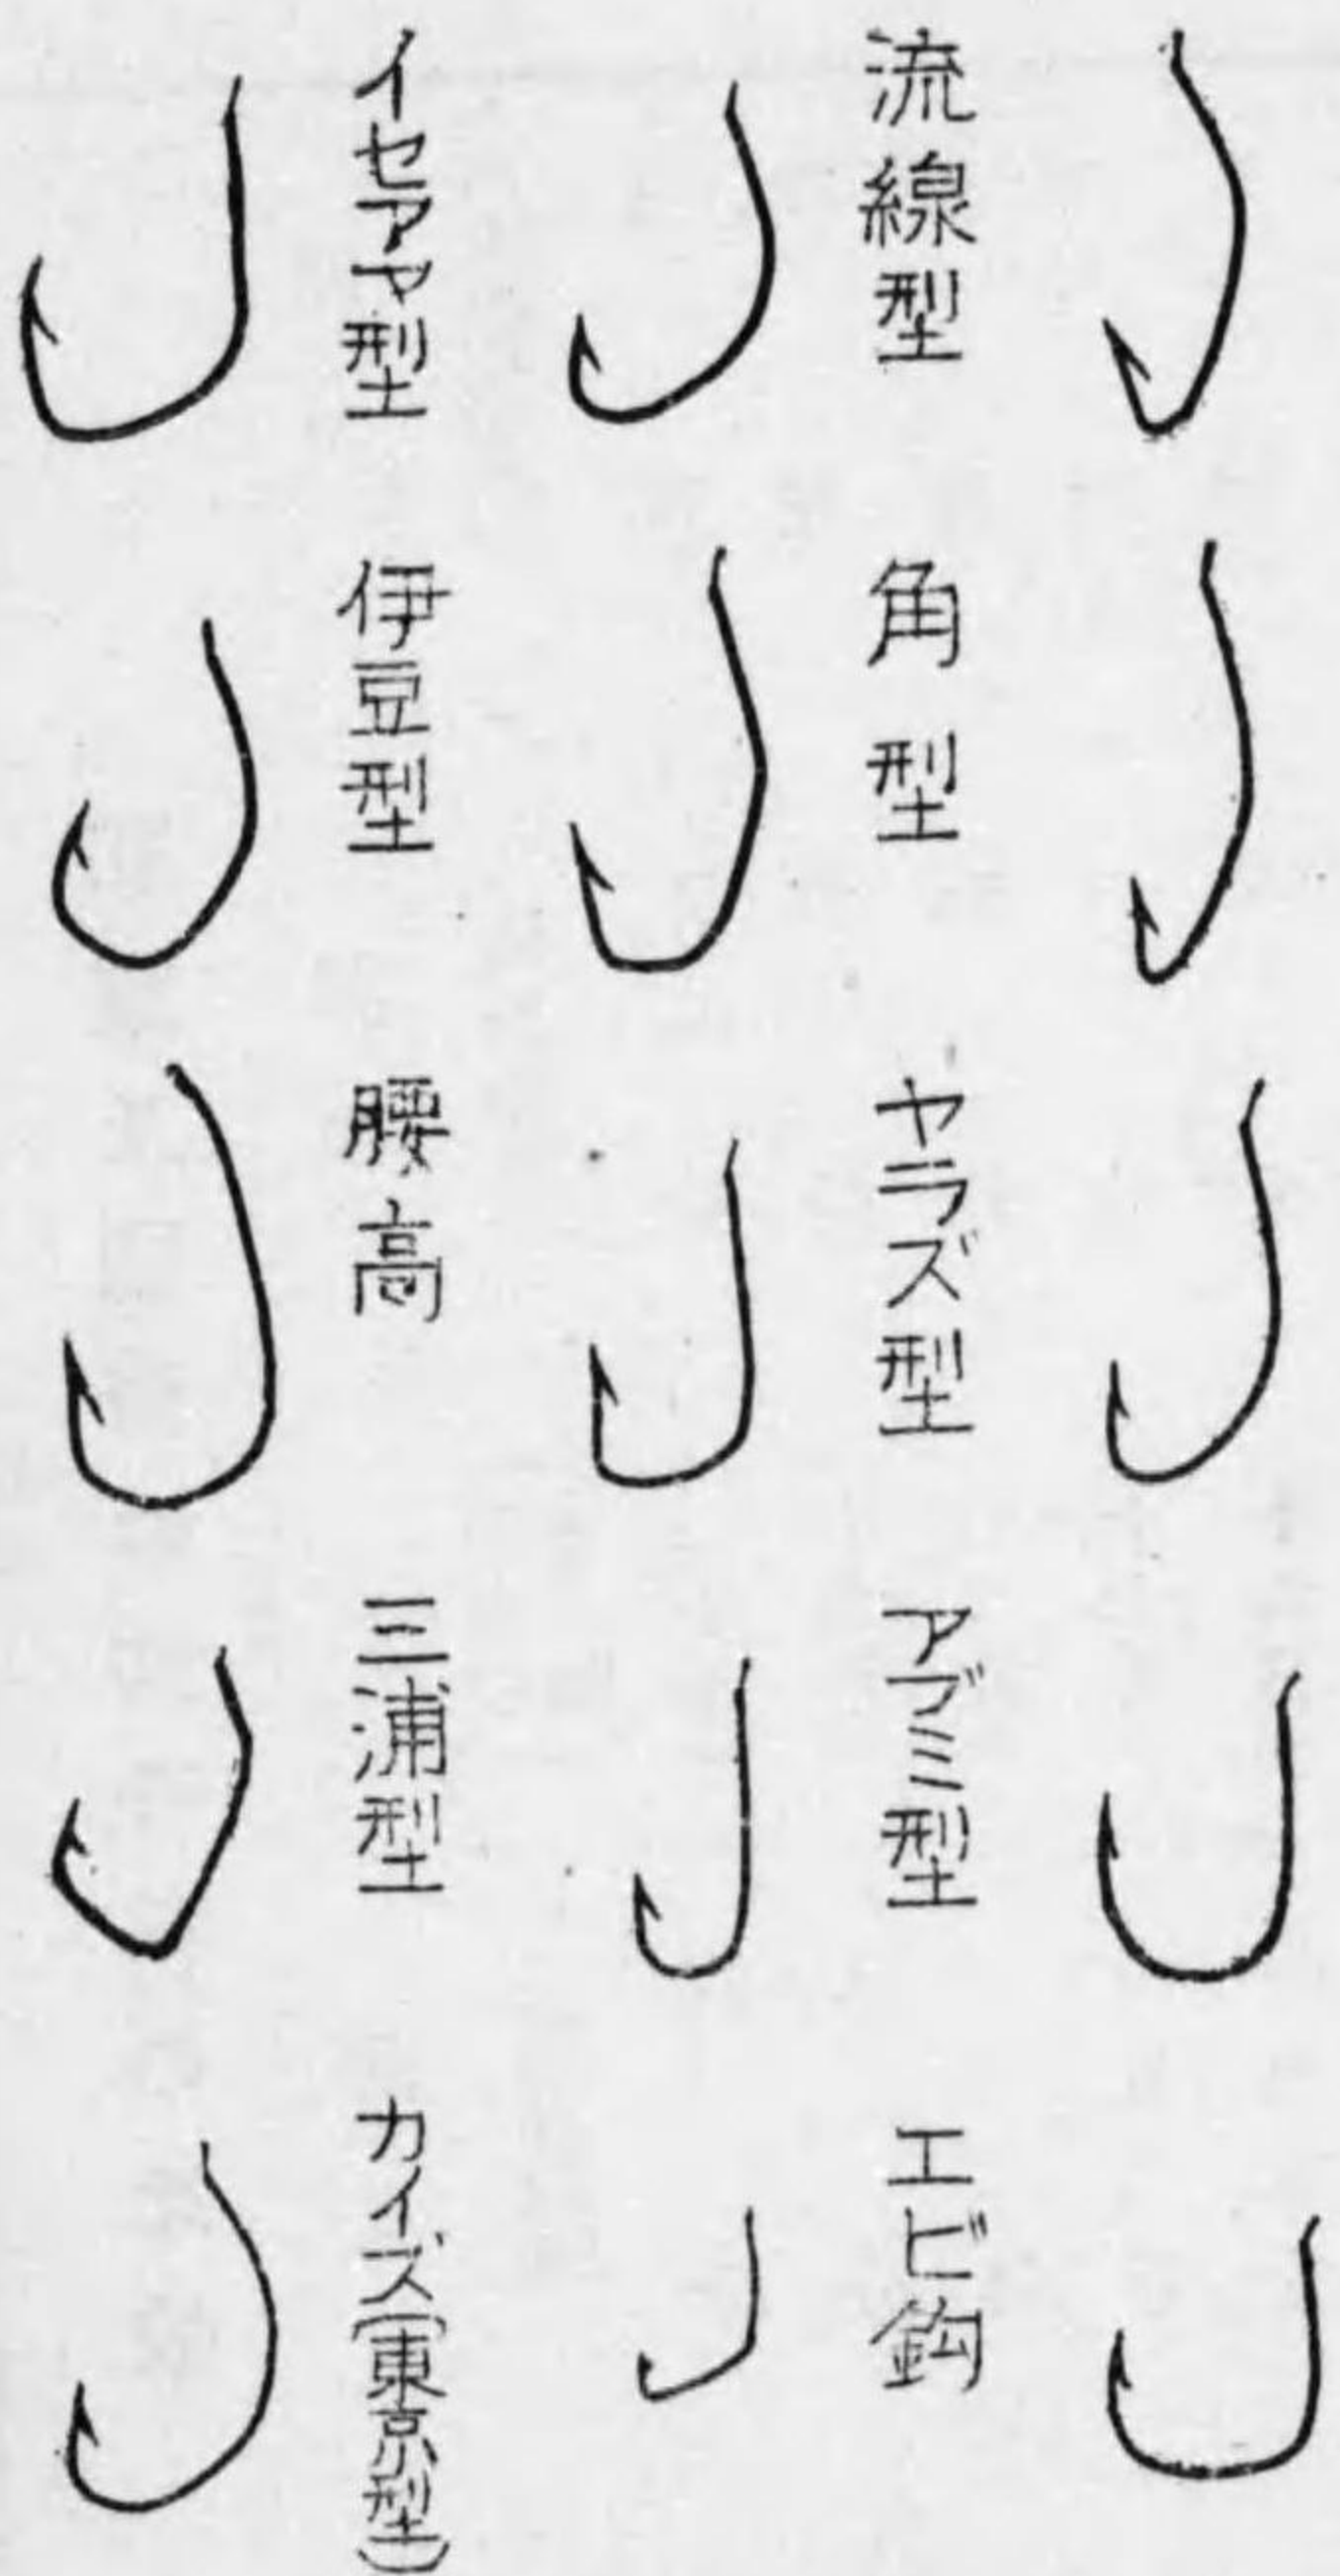 流線型
角型
ヤラズ型
アブミ型
エビ鈎
イセアマ型
伊豆型
腰高
三浦型
カイズ(東京型)